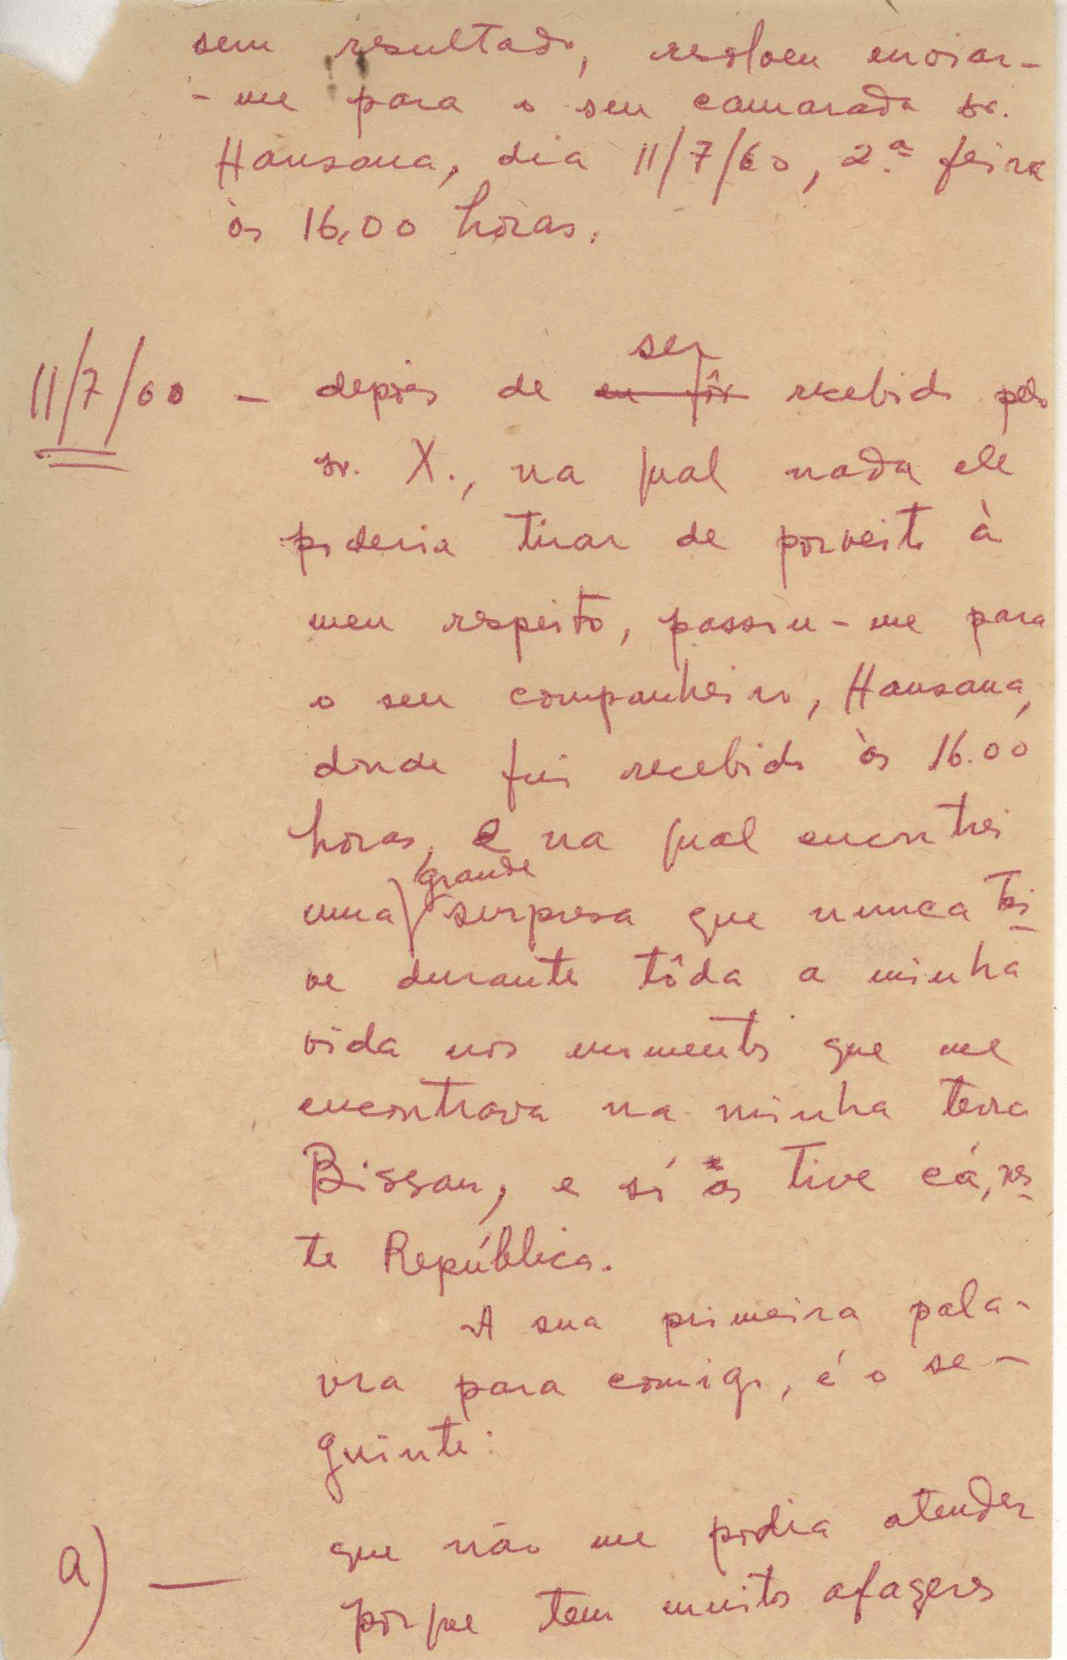 sem resultado, resolveu enviar-
-me para o seu camarada sr.
Hausana, dia 11/7/60, 2.ª feira
às 16,00 horas.
ser
11/7/60 - depois de eu fôr recebido pelo
sr. X., na qual nada ele
poderia tirar de porveito à
meu respeito, passou-me para
o seu companheiro, Hausana,
donde fui recebido às 16.00
horas, e na qual encontrei
grande
uma surpresa que nunca ti-
ve durante tôda a minha
vida nos momentos que me
encontrava na minha terra
Bissau, e só os tive cá, nes-
te República.
A sua primeira pala-
vra para comigo, é o se-
guinte:
a) — que não me podia atender
porque tem muitos afazeres